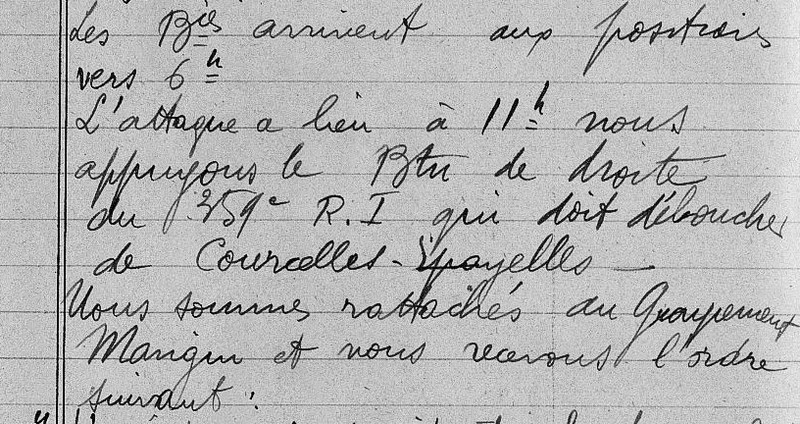 Les Bies arrivent aux positions
vers 6h
L'attaque a lieu à 11h nous
appuyons le Btn de droite
du 359e R.I qui doit déboucher
de Courcelles-Epayelles —
Nous sommes rattachés au Groupement
Mangin et nous recevons l'ordre
suivant :